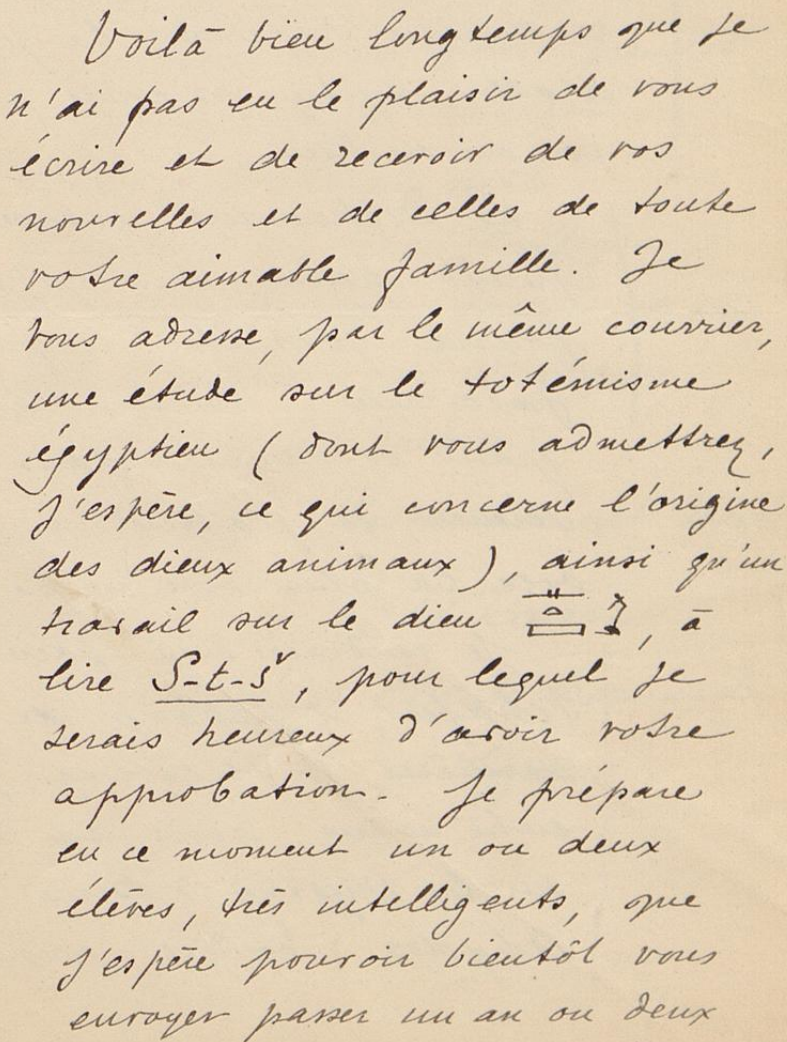 Voilà bien longtemps que je
n'ai pas eu le plaisir de vous
écrire et de recevoir de vos
nouvelles et de celles de toute
votre aimable famille. Je
vous adresse, par le même courrier,
une étude sur le totémisme
égyptien (dont vous admettrez,
j'espère, ce qui concerne l'origine
des dieux animaux), ainsi qu'un
travail sur le dieu , à
lire S-t-š, pour lequel je
serais heureux d'avoir votre
approbation. Je prépare
en ce moment un ou deux
élèves, très intelligents, que
j'espère pouvoir bientôt vous
envoyer passer un an ou deux